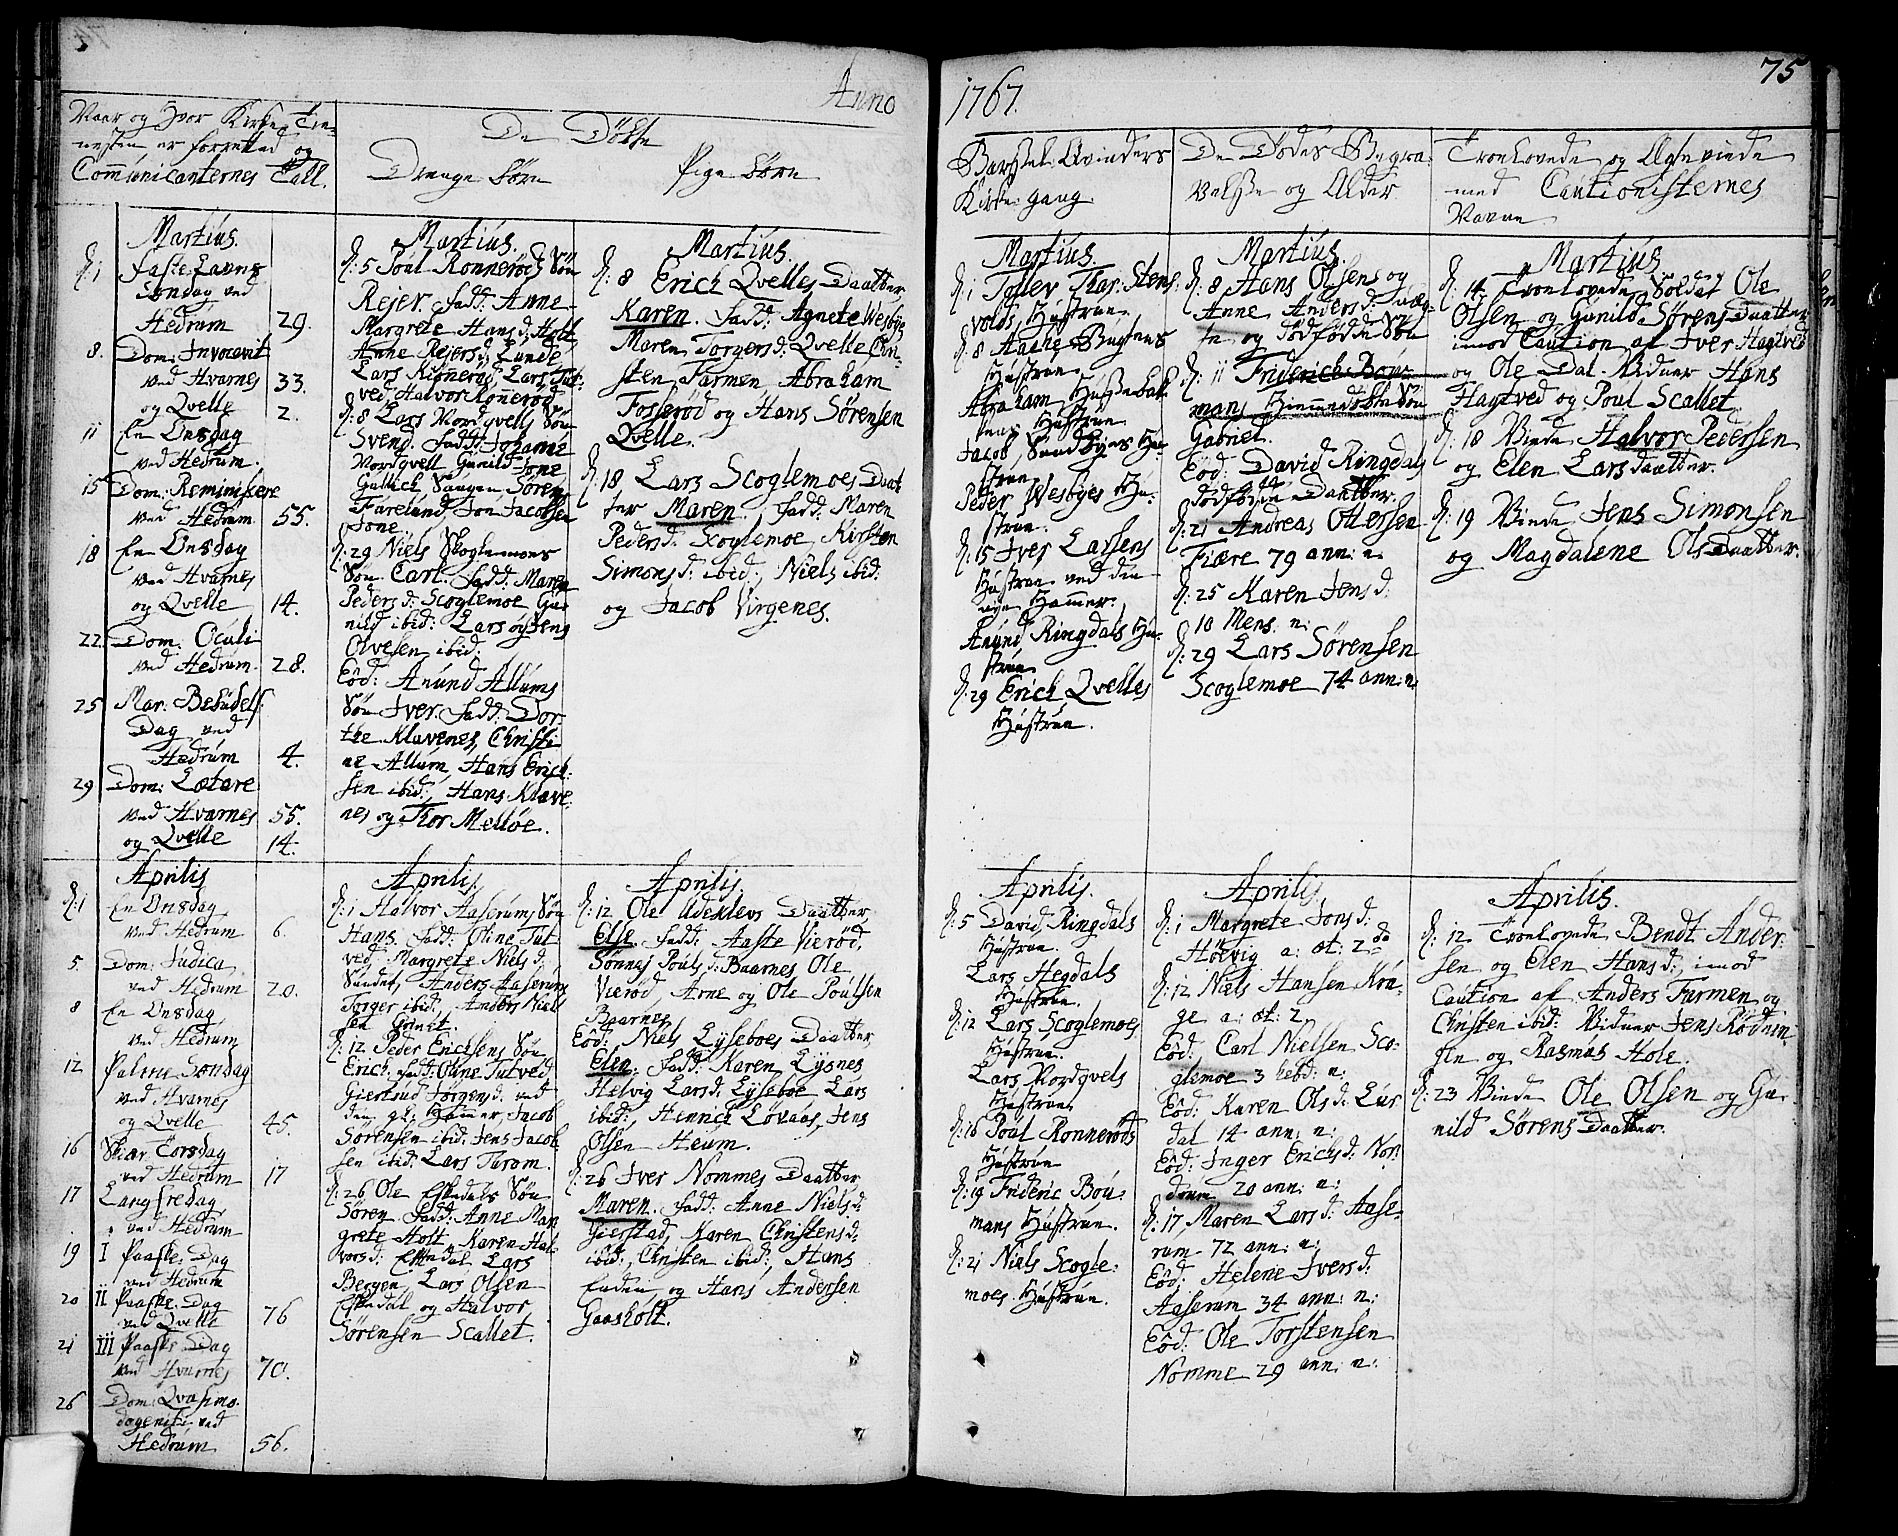 Anno
Naar og Hvor Kirke Tie-
nesten er forretted og
Communicanternes Tall.
De Döbte
Drenge Børn
Pige Børn
Martius.
d: 1 Faste Lavns
Søndag ved
Hedrum 29.
8. Dom: Invocavit
ved Hvarnes 33.
og Qvelle 2.
11 En Onsdag
ved Hedrum.
15 Dom: Reminiscere
ved Hedrum 55.
18 En Onsdag
ved Hvarnes
og Qvelle 14.
22. Dom: Oculi
ved Hedrum 28.
25 Mar: Bebudels:
Dag ved
Hedrum 4.
29 Dom: Lætare
ved Hvarnes 55.
og Qvelle 14.
Aprilis
d: 1 En Onsdag
ved Hedrum 6.
5. Dom: Judica
ved Hedrum 20.
8 En Onsdag
ved Hedrum
12 Palme Søndag
ved Hvarnes
og Qvelle 45.
16 Skiær Torsdag
ved Hedrum 17
17 Langfredag
ved Hedrum
19 I Paaske Dag
ved Hedrum
20 II Paaske Dag
ved Qvelle 76
21 III Paaske Dag
ved Hvarnes 70.
26 Dom: Qvasimo-
dogeniti ved
Hedrum 56.
Martius.
d: 5 Poul Ronnerøds Søn
Rejer. Fadd: Anne
Margrete Hansd: Holt
Anne Rejersd: Lunde
Lars Ronnerød, Lars Tut-
ved, Halvor Ronerød
d: 8 Lars Nordqvells Søn
Svend. Fadd: Johanne
Nordqvell Gunild Tone
Gullich Saugen, Søren
Farelund, Jon Jacobsen
Tone.
d: 29 Niels Skoglemoes
Søn Carl. Fadd: Maren
Pedersd: Scoglemoe Gu-
nild ibid: Lars og Jens
Olvesen ibid:
Eod: Anund Allums
Søn Iver. Fadd: Dor-
the Klavenes, Christi-
ne Allum, Hans Erich-
sen ibid:, Hans Klave-
nes og Thor Melløe.
Aprilis.
d: 1 Halvor Aaserums Søn
Hans. Fadd: Oline Tut-
ved, Margrete Nielsd:
Sundet, Anders Aaserum
Torger ibid: Anders Niel-
sen Grinet.
d: 12 Peder Erichsens Søn
Erich. Fadd: Oline Tutved
Giertrud Jørgensd: ved
den gl: Hammer, Jacob
Sørensen ibid: Jens Jacob-
sen ibid: Lars Tarom.
d: 26 Ole Eskedals Søn
Søren. Fadd: Anne Mar-
grete Holt, Karen Hal-
vorsd: Eskedal Lars
Bergen, Lars Olsen
Eskedal og Halvor
Sørensen Scallet.
Martius.
d: 8 Erich Qvelles Daatter
Karen. Fadd: Agnete Wesbye
Maren Torgersd: Qvelle Chri-
sten Farmen Abraham
Fosserød og Hans Sørensen
Qvelle.
d: 18 Lars Scoglemoes Daat-
ter Maren. Fadd: Maren
Pedersd: Scoglemoe, Kirsten
Simonsd: ibid:, Niels ibid:
og Jacob Virgenes.
Aprilis.
d: 12 Ole Udeklevs Daatter
Else. Fadd: Aaste Vierød,
Sønnej Poulsd: Baarnes Ole
Vierød, Arne og Ole Poulsen
Baarnes.
Eod: Niels Lyseboes Daatter
Elen. Fadd: Karen Lysnes
Helvig Larsd: Lyseboe Lars
ibid:, Henrich Løvaas, Jens
Olsen Heum.
d: 26 Iver Nommes Daatter
Maren. Fadd: Anne Nielsd:
Gierstad, Karen Christensd:
ibid:, Christen ibid:, Hans
Enden og Hans Andersen
Gaasholt.
1767.
75
Barsel Qvinders
Kirke gang.
De Dödes Begra-
velse og Alder
Trolovede og Egteviede
med Cautionisternes
Navne
Martius.
d: 1 Tollev Thor: Stens-
volds Hustrue.
d: 8 Aache Bugtens
Hustrue.
Abraham Husebak-
kens Hustrue
Jacob Sundbyes Hu-
strue
Peder Wesbyes Hu-
strue.
d: 15 Iver Larsens
Hustrue ved den
nye Hammer.
Anund Ringdals Hu-
strue
d: 29 Erich Qvelles
Hustrue.
Aprilis.
d: 5 David Ringdals
Hustrue.
Lars Hegdals
Hustrue.
d: 12 Lars Scoglemoes
Hustrue.
Lars Nordqvels
Hustrue
d: 16 Poul Ronnerøds
Hustrue
d: 19 Frideric Bou-
mans Hustrue.
d: 21 Niels Scogle-
moes Hustrue.
Martius.
d: 8 Hans Olsens og
Anne Andersd: uæg-
te og Dødfødde Søn
d: 11 Friderich Bou-
mans Hiemmedöbte Søn
Gabriel.
Eod: David Ringdals
dødfødde Daatter.
d: 21 Andreas Ottersen
Fiære 79 ann: n:
d: 25 Karen Jensd:
10 Mens: n:
d: 29 Lars Sørensen
Scoglemoe 74 ann: n:
Aprilis.
d: 1 Margrete Jonsd:
Høevig a: æt: 2do
d: 12 Niels Hansen Kra-
ge a: æt: 2.
Eod: Carl Nielsen Sco-
glemoe 3 hebd: n:
Eod: Karen Olsd: Lur-
dal 14 ann: n:
Eod: Inger Erichsd: Nor-
drum 20 ann: n:
d: 17 Maren Larsd: Aase-
rum 72 ann: n:
Eod: Helene Iversd:
Aaserum 34 ann: n:
Eod: Ole Torstensen
Nomme 29 ann: n:
Martius.
d: 14 Trolovede Soldat Ole
Olsen og Gunild Sørens Daatter
imod Caution af Iver Hagtved
og Ole Dal. Vidner Hans
Hagtved og Poul Scallet.
d: 18 Viede Halvor Pedersen
og Elen Larsdaatter.
d: 19 Viede Jens Simonsen
og Magdalene Olsdaatter.
Aprilis.
d: 12 Trolovede Bendt Ander-
sen og Elen Hansd:, imod
Caution af Anders Farmen og
Christen ibid: Vidner Jens Rødum-
gen og Rasmus Hole.
d: 23 Viede Ole Olsen og Gu-
nild Sørens Daatter.